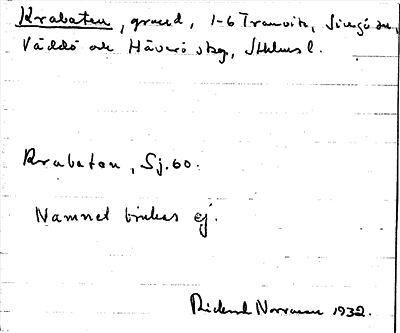 Krabaten, grund, 1-6 Tranvik, Singö sn,
Väddö och Häverö skg, Sthlms l.
Krabaten, Sj. 60.
Namnet brukas ej.
Rickard Norrman 1932.